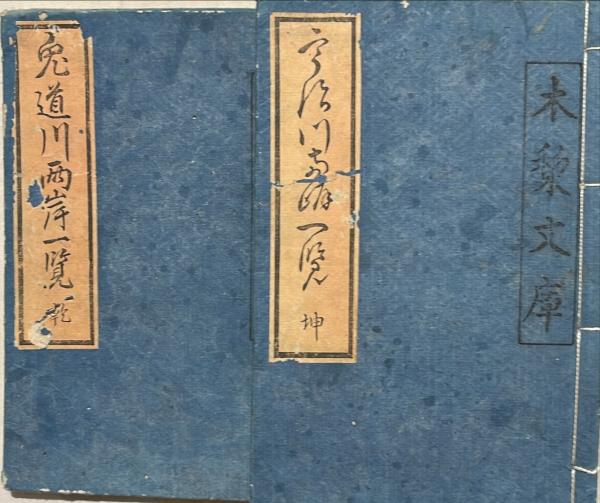 木黎文庫
宇治川両岸一覧 坤
兎道川両岸一覧 乾